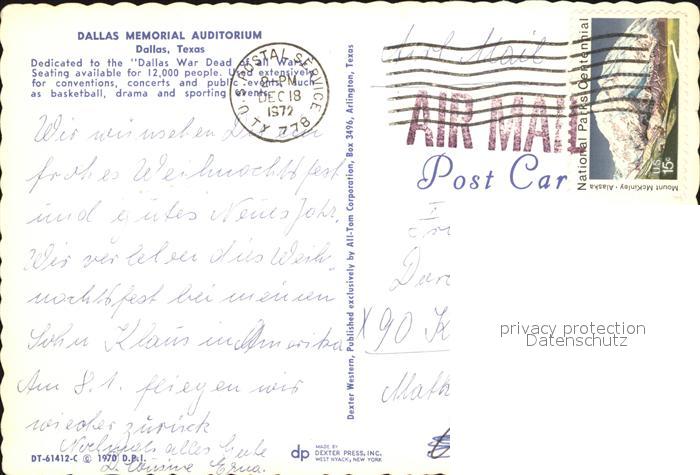 DALLAS MEMORIAL AUDITORIUM
Dallas, Texas
Dedicated to the "Dallas War Dead of all Wars."
Seating available for 12,000 people. Used extensively
for conventions, concerts and public events such
as basketball, drama and sporting events.
Wir wünschen
frohes Weihnachtsfest
und gutes Neues Jahr.
Wir verleben dies Weih-
nachtsfest bei meinem
Sohn Klaus in Amerika
Am 8.1. fliegen wir
wieder zurück
Nochmals alles Gute
Cousine Erna.
DT-61412-C © 1970 D.P.I.
U.S. POSTAL SERVICE
PM
DEC 18
1972
TX 778
Dexter Western, Published exclusively by All-Tom Corporation, Box 3496, Arlington, Texas
dp
MADE BY
DEXTER PRESS, INC.
WEST NYACK, NEW YORK
Air Mail
AIR MAIL
Post Car
National Parks Centennial
Mount McKinley · Alaska
U.S. 15c
X90 K
Math
privacy protection
Datenschutz